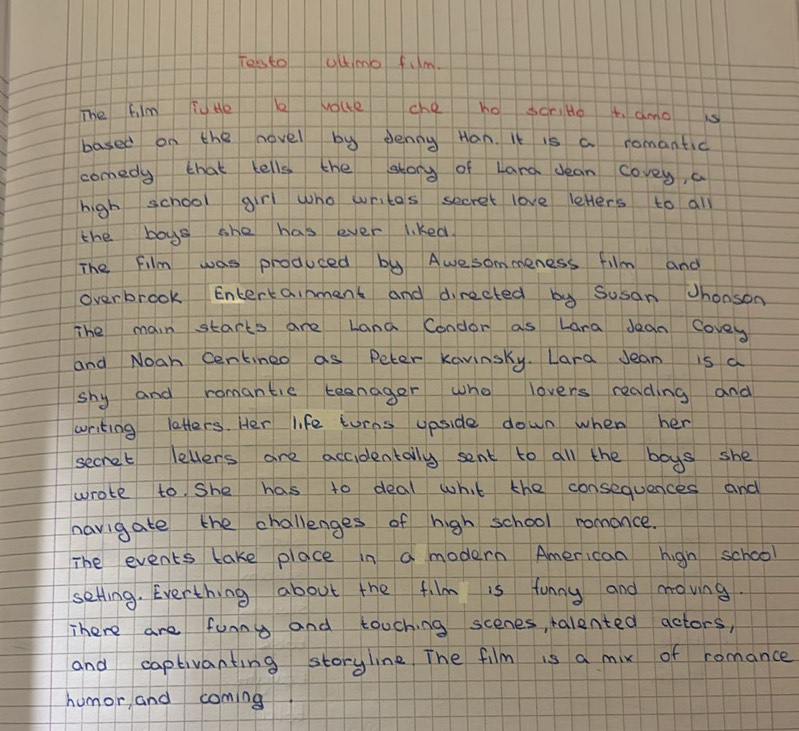 Testo ultimo film.
The film Tutte le volte che ho scritto ti amo is
based on the novel by Jenny Han. It is a romantic
comedy that tells the story of Lara Jean Covey, a
high school girl who writes secret love letters to all
the boys she has ever liked.
The film was produced by Awesommeness film and
Overbrook Entertainment and directed by Susan Jhonson
The main starts are Lana Condor as Lara Jean Covey
and Noah Centineo as Peter Kavinsky. Lara Jean is a
shy and romantic teenager who lovers reading and
writing letters. Her life turns upside down when her
secret letters are accidentally sent to all the boys she
wrote to. She has to deal whit the consequences and
navigate the challenges of high school romance.
The events take place in a modern American high school
setting. Everthing about the film is funny and moving.
There are funny and touching scenes, talented actors,
and captivanting storyline. The film is a mix of romance
humor, and coming .